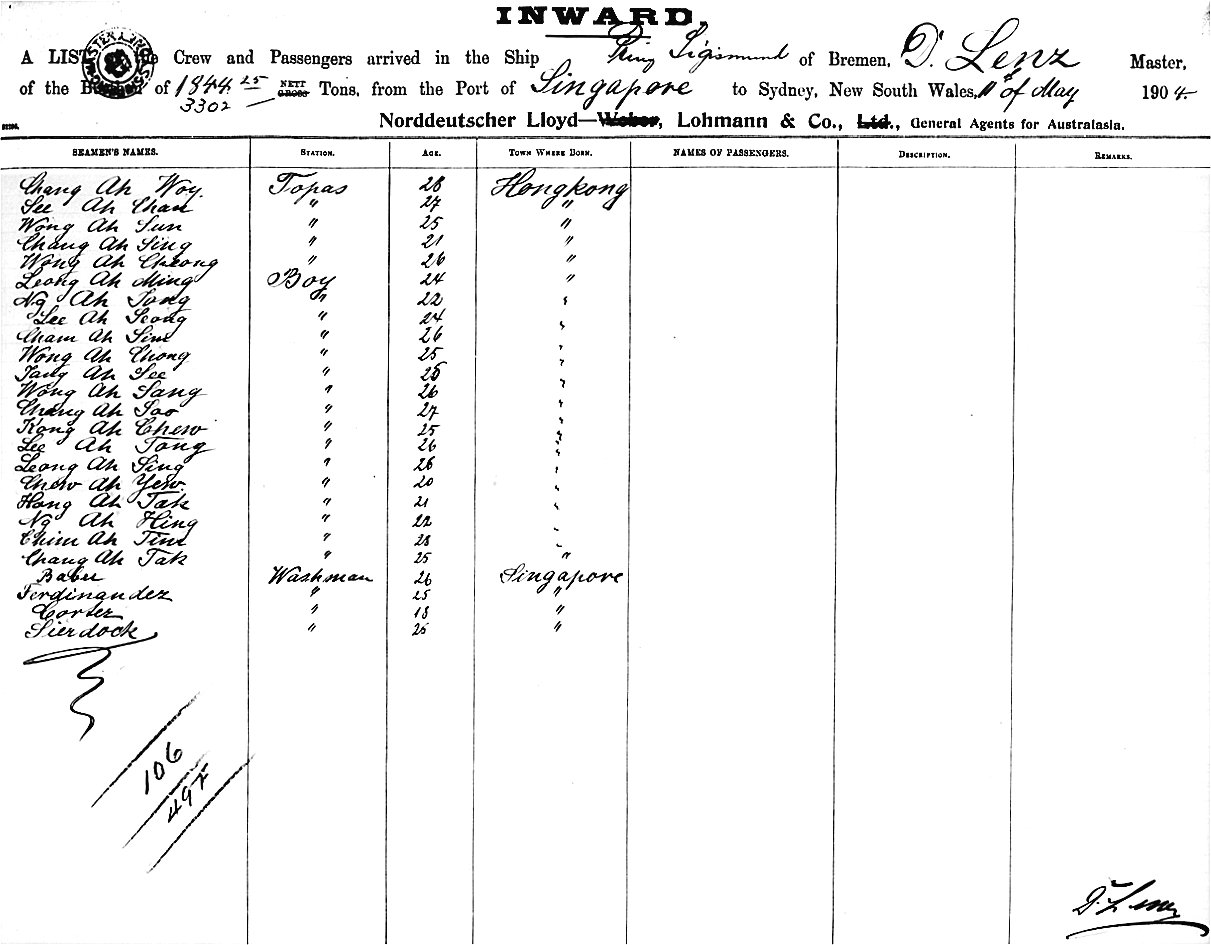 INWARD.
A LIST of the Crew and Passengers arrived in the Ship Prinz Sigismund of Bremen, D. Lenz Master,
of the Burden of 1844 25 NETT GROSS Tons, from the Port of Singapore to Sydney, New South Wales, of May 1904.
3302
Norddeutscher Lloyd—Weber, Lohmann & Co., Ltd., General Agents for Australasia.
SEAMEN'S NAMES. STATION. AGE. TOWN WHERE BORN. NAMES OF PASSENGERS. DESCRIPTION. REMARKS.
Chang Ah Woy. Topas 28 Hongkong
See Ah Chan " 27 "
Wong Ah Sun " 25 "
Chang Ah Sing " 21 "
Wong Ah Cheong " 26 "
Leong Ah Ming Boy 24 "
Ng Ah Song " 22 "
Lee Ah Seong " 24 "
Cham Ah Sim " 26 "
Wong Ah Chong " 25 "
Tang Ah See " 25 "
Wong Ah Sang " 26 "
Chang Ah Soo " 27 "
Kong Ah Chew " 25 "
Lee Ah Tong " 26 "
Leong Ah Sing " 26 "
Chew Ah Yew. " 20 "
Hong Ah Tak " 21 "
Ng Ah Hing " 22 "
Chim Ah Tim " 28 "
Chang Ah Tak " 25 "
Babu Washman 26 Singapore
Ferdinandez " 25 "
Cortez " 18 "
Sierdock " 25 "
106
497
D. Lenz